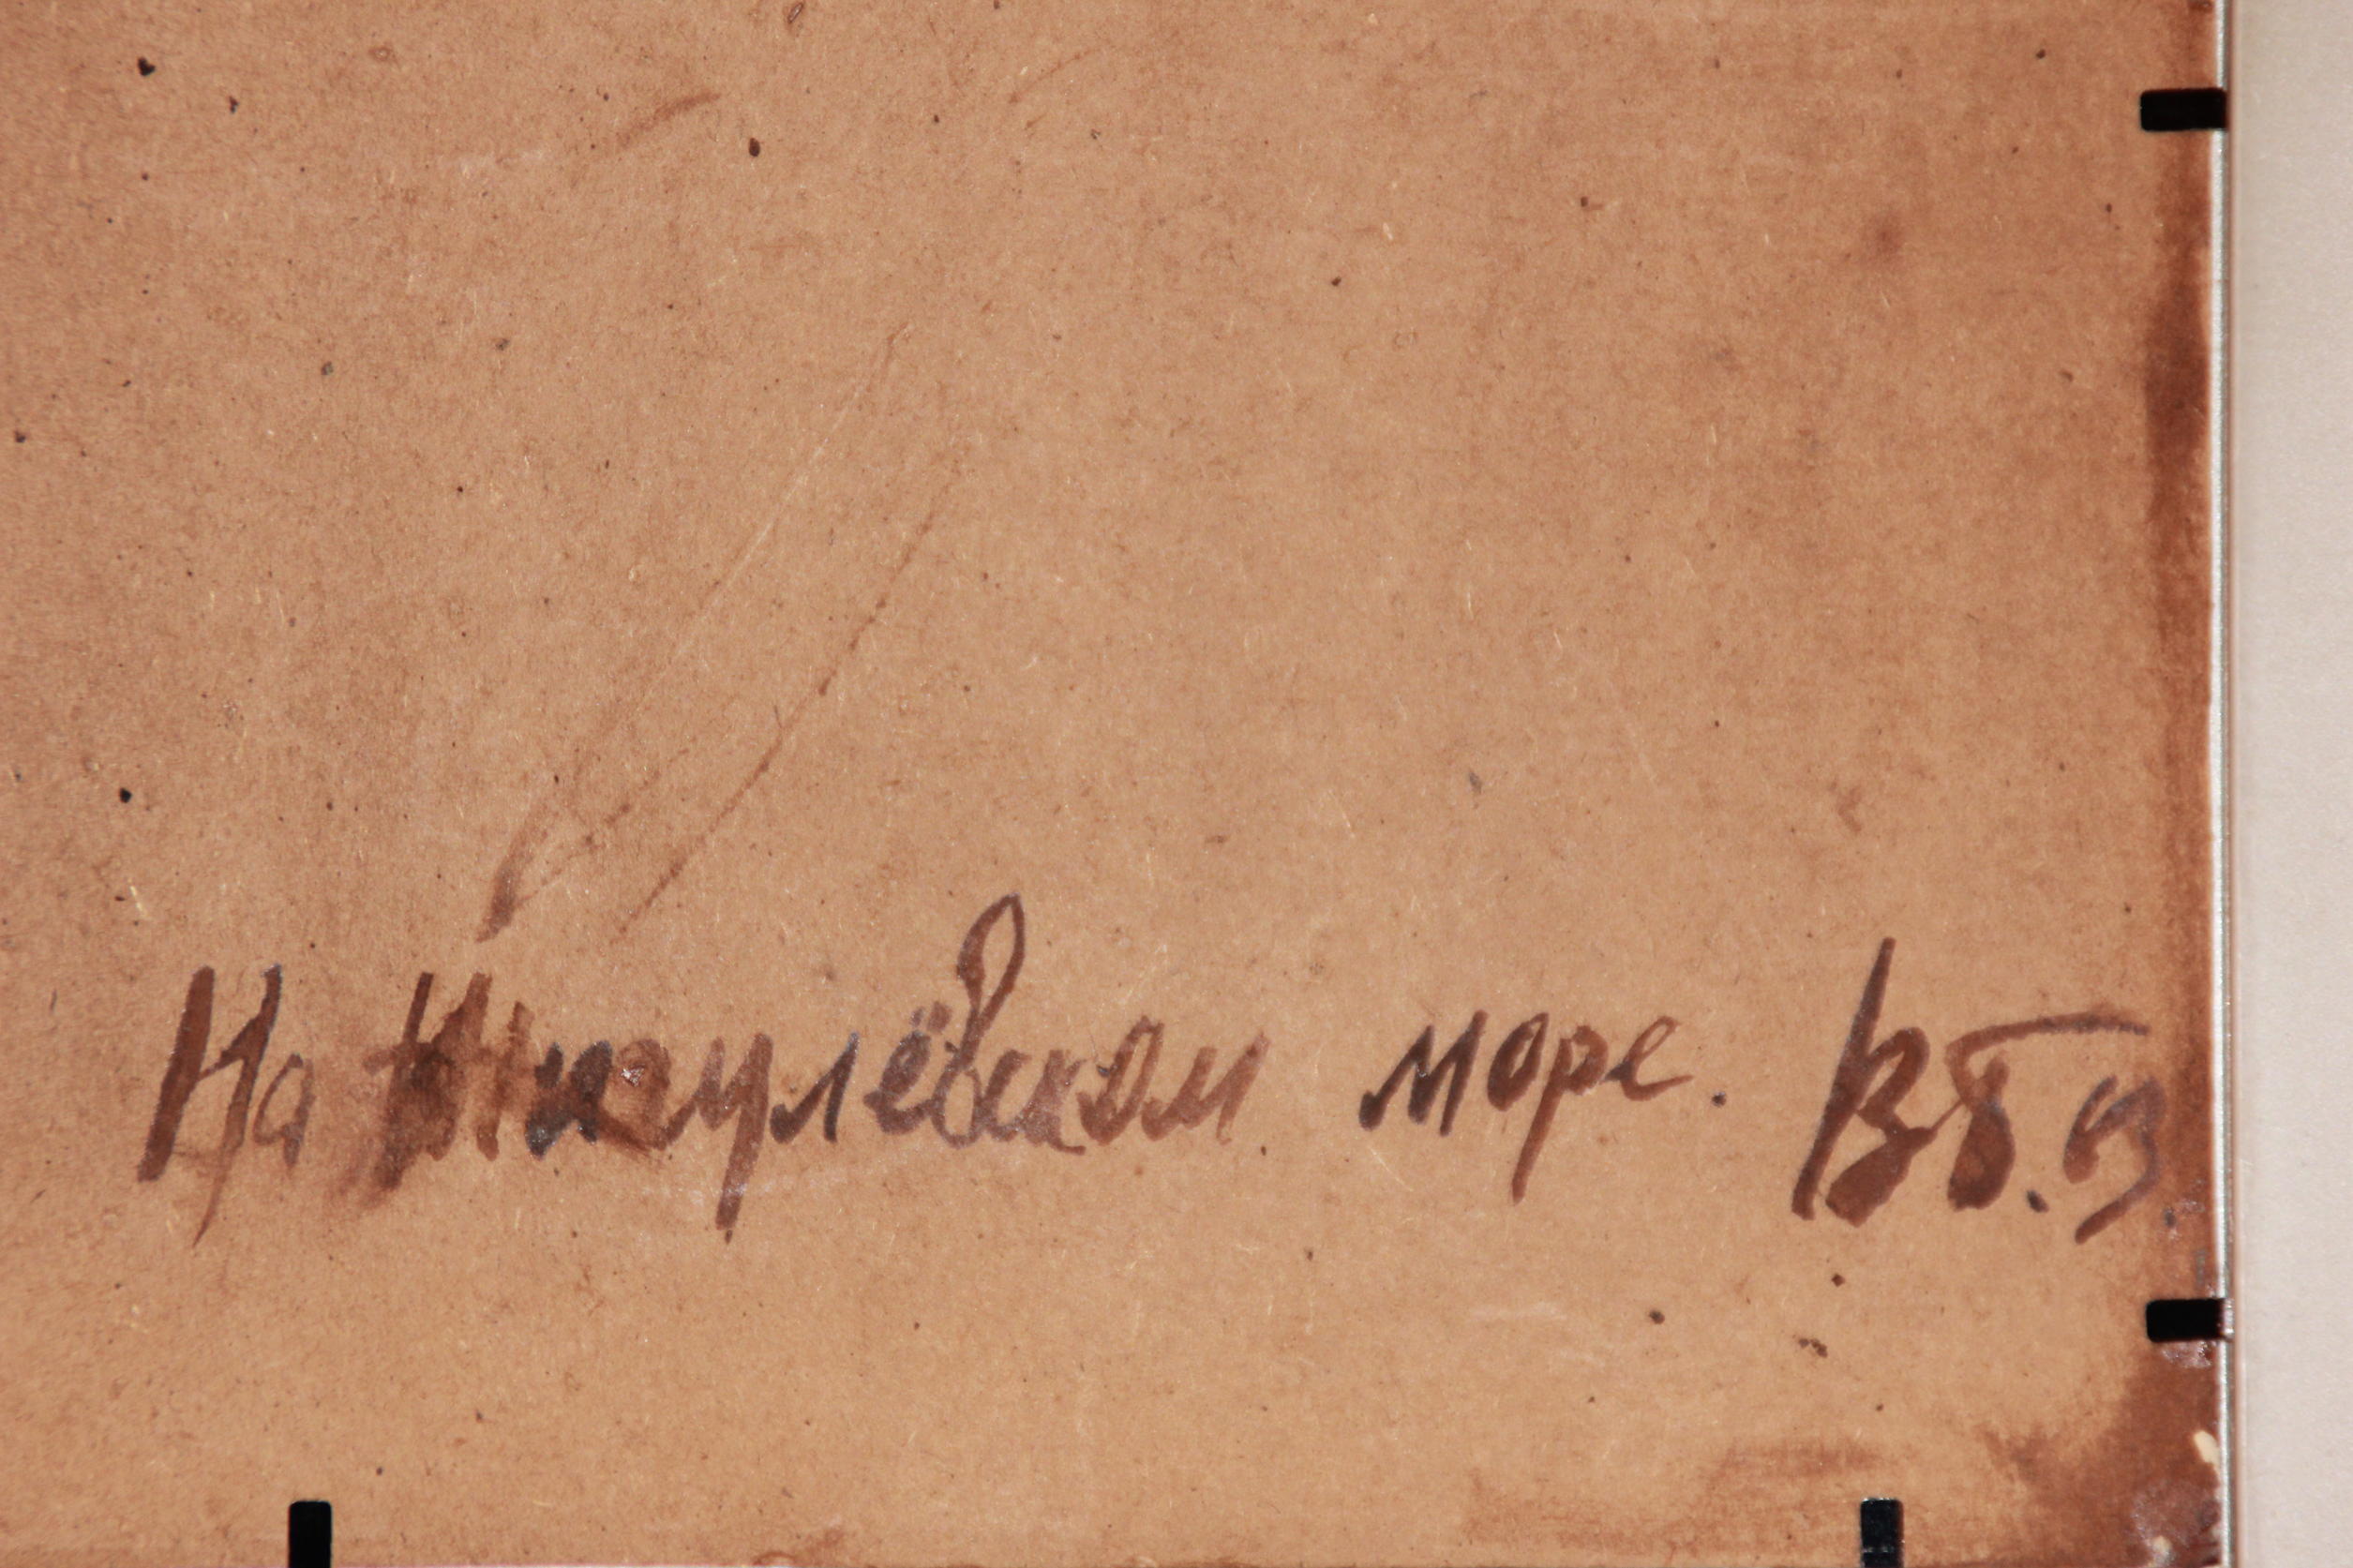 На Жигулёвском море.